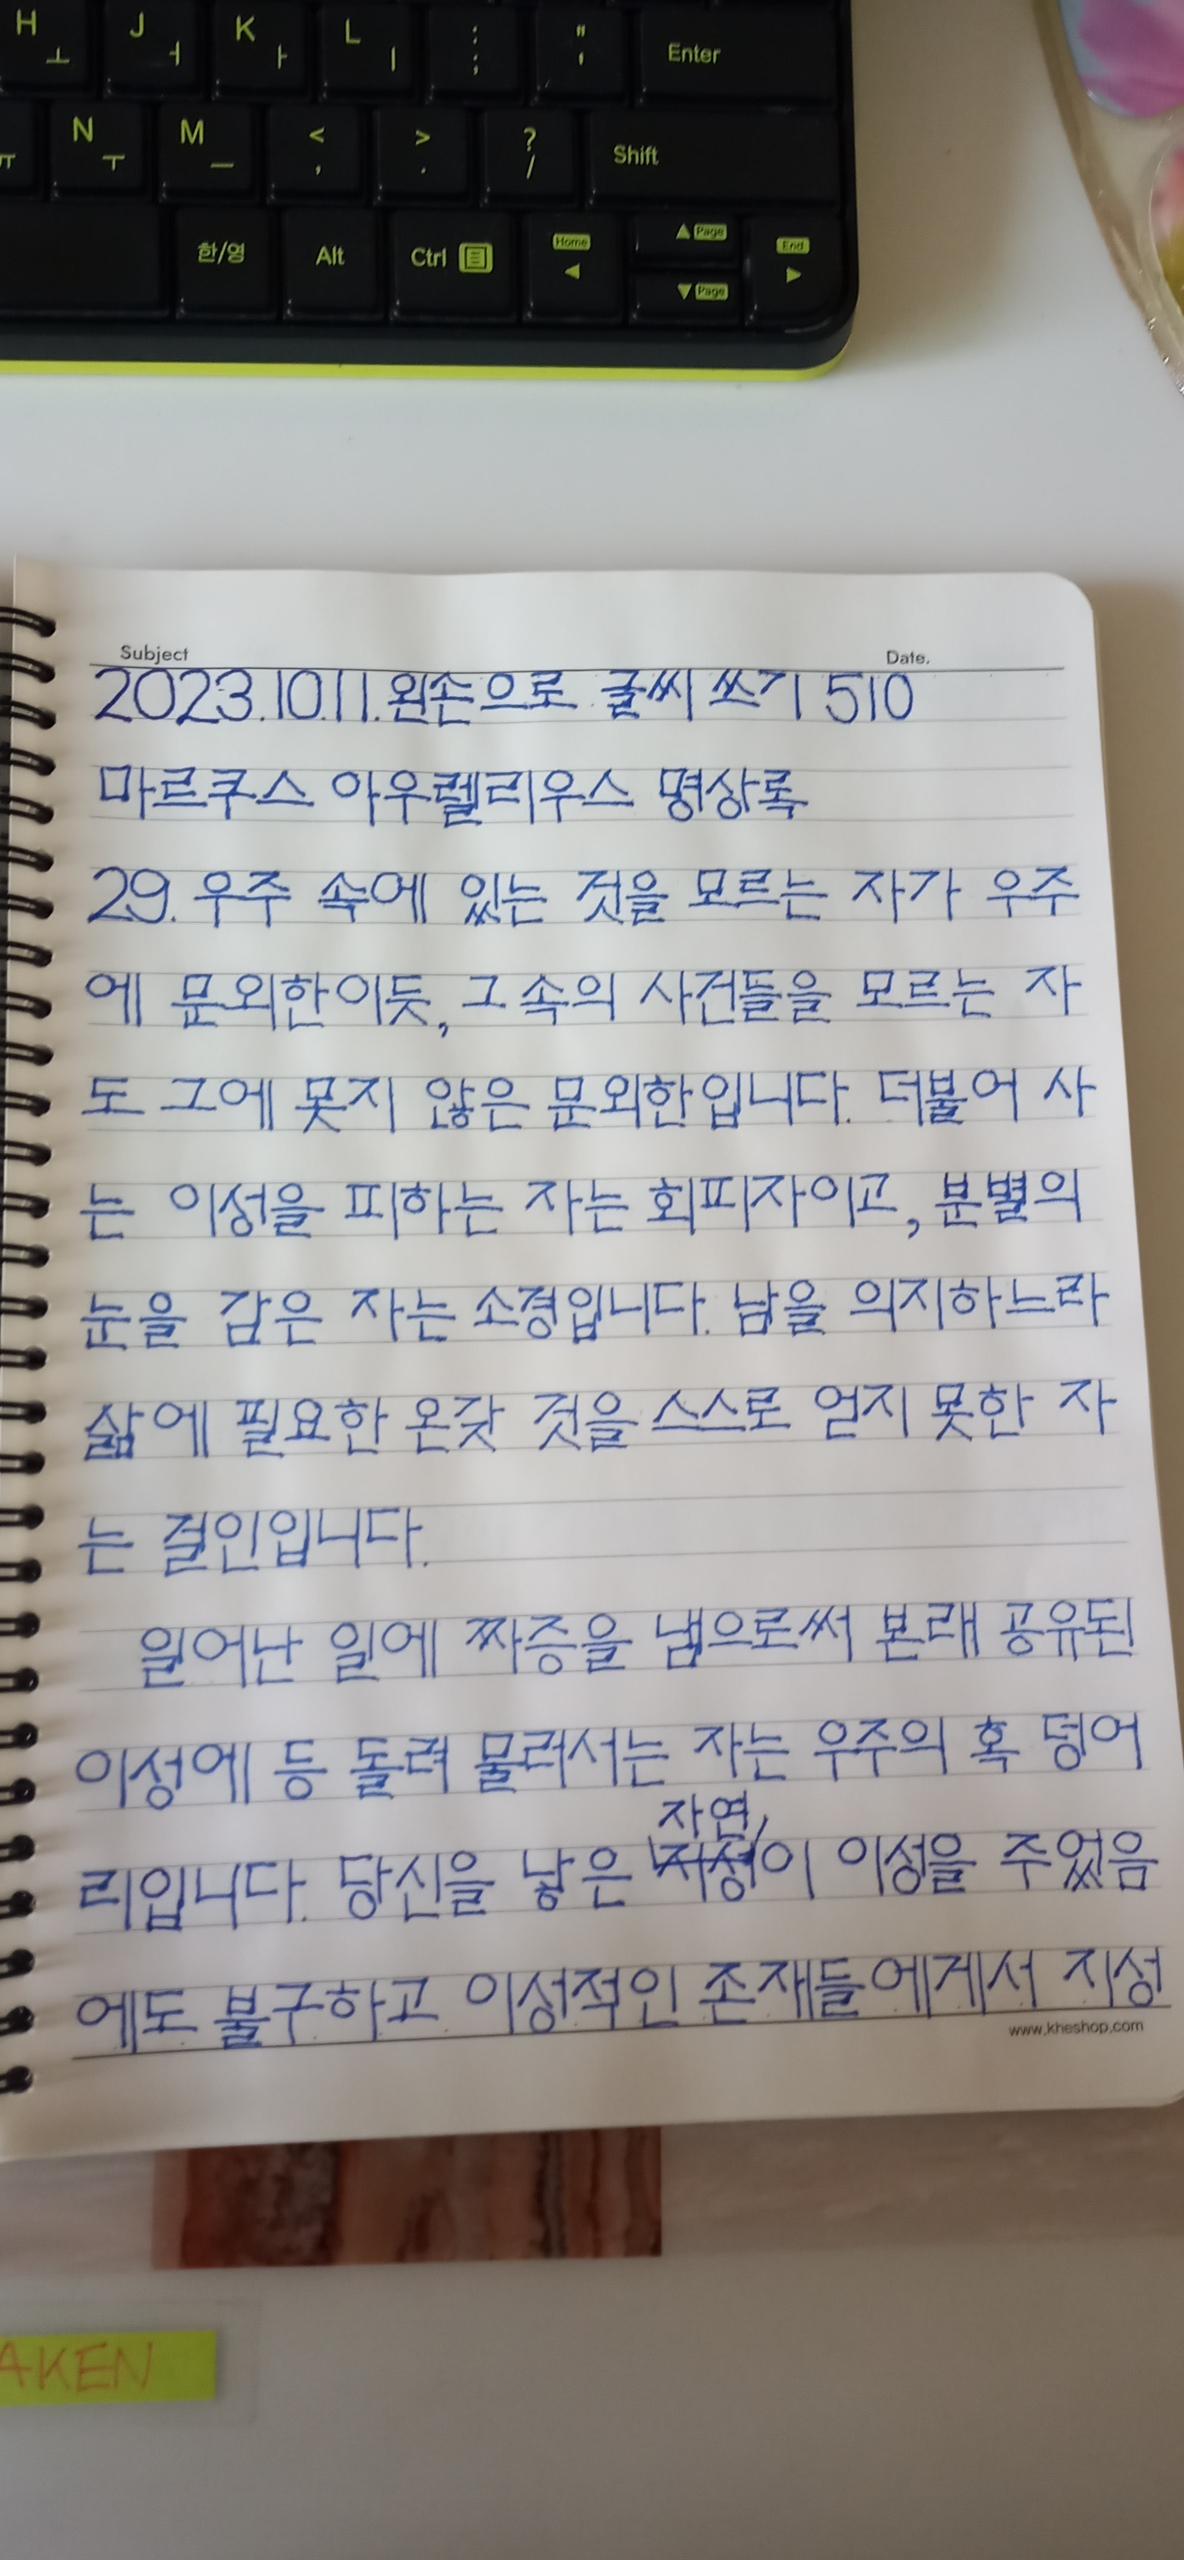 H ㅗ J ㅓ K ㅏ L ㅣ : ; " ' Enter
ㅠ N ㅜ M ㅡ < , > . ? / Shift
한/영 Alt Ctrl Home ◀ ▲ Page ▼ Page End ▶
Subject Date.
2023.10.11. 왼손으로 글씨 쓰기 510
마르쿠스 아우렐리우스 명상록
29. 우주 속에 있는 것을 모르는 자가 우주
에 문외한이듯, 그 속의 사건들을 모르는 자
도 그에 못지 않은 문외한입니다. 더불어 사
는 이성을 피하는 자는 회피자이고, 분별의
눈을 감은 자는 소경입니다. 남을 의지하느라
삶에 필요한 온갖 것을 스스로 얻지 못한 자
는 걸인입니다.
일어난 일에 짜증을 냄으로써 본래 공유된
이성에 등 돌려 물러서는 자는 우주의 혹 덩어
자연,
리입니다. 당신을 낳은 지성이 이성을 주었음
에도 불구하고 이성적인 존재들에게서 지성
www.kheshop.com
AKEN